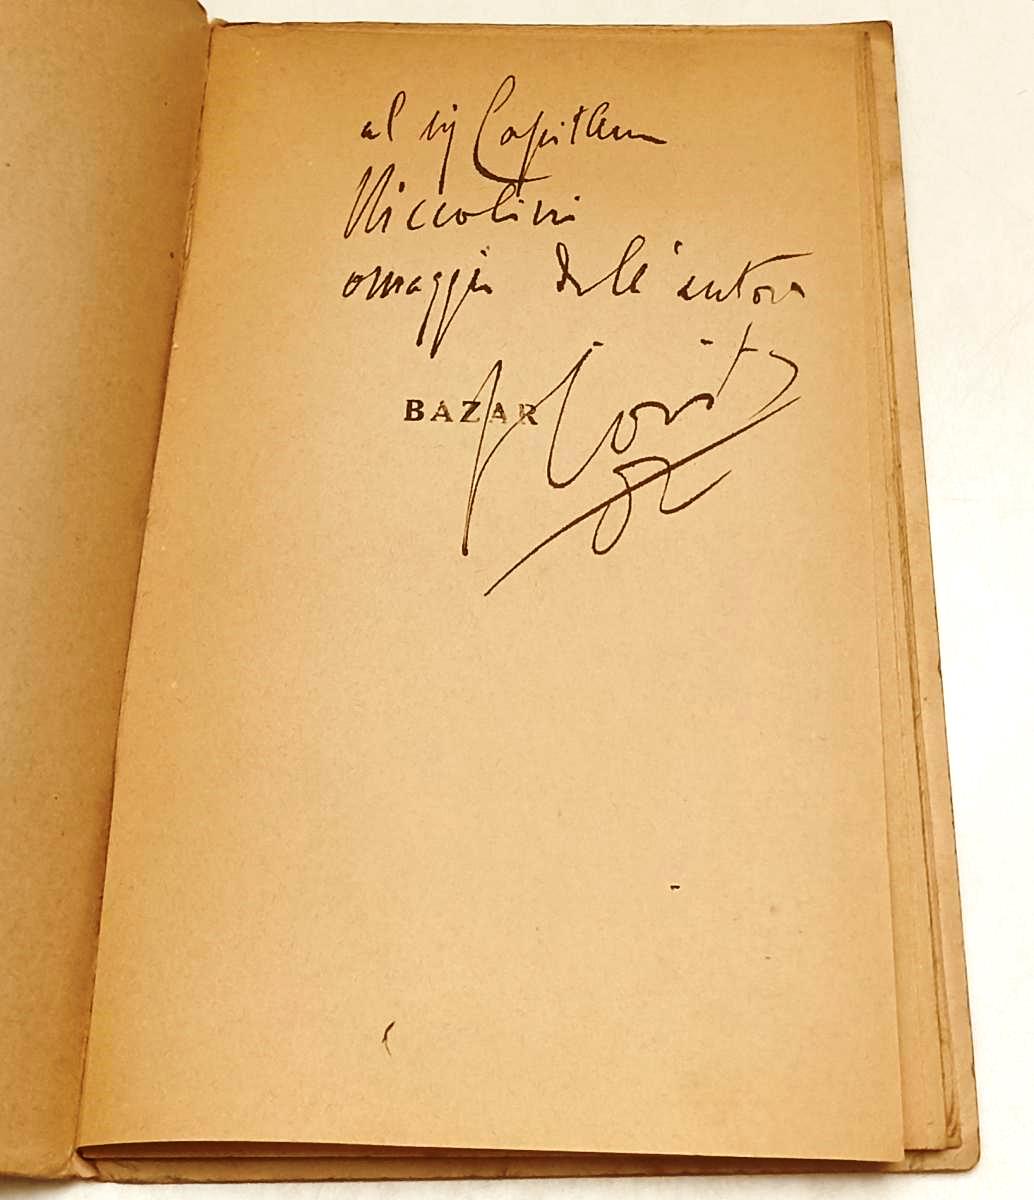 al sig Capitano
Niccolini
omaggio dell'autore
BAZAR